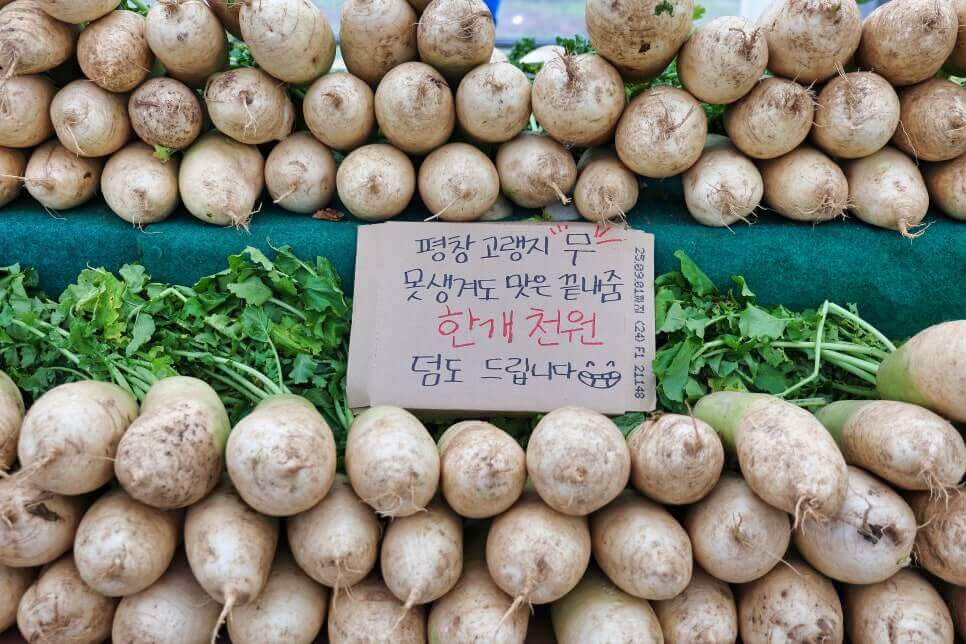 평창 고랭지 무
못생겨도 맛은 끝내줌
한개 천원
덤도 드립니다
25.09.01까지 (24) F1 21148